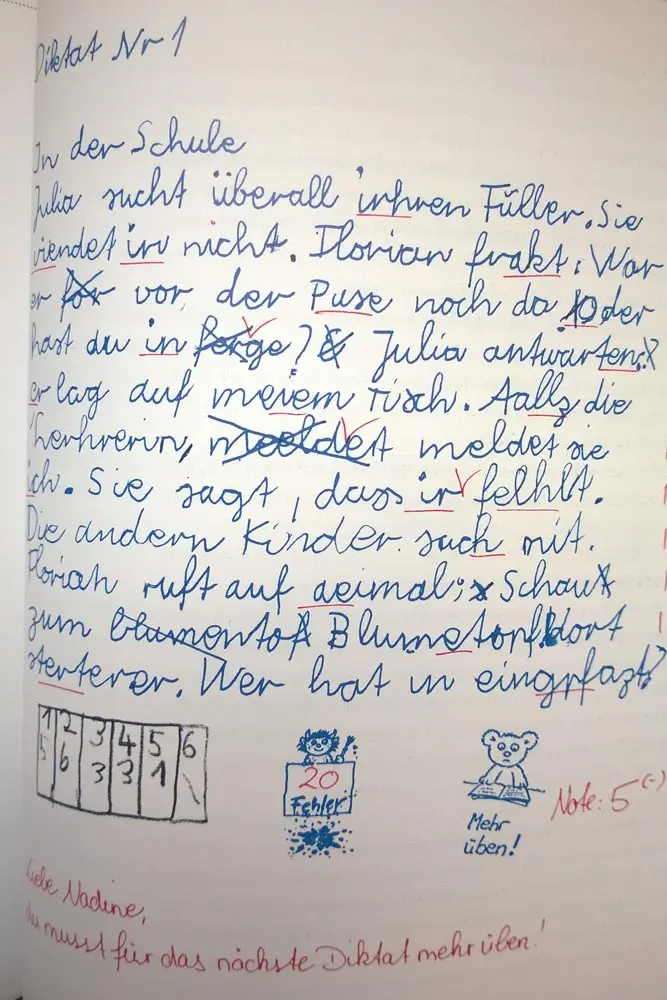 Diktat Nr 1
In der Schule
Julia sucht überall irhren Füller. Sie
viendet irv nicht. Florian frakt: War
er för vor der Puse noch da oder
hast du in ferge? Julia antwarten:
er lag auf meiem Tisch. Aalls die
Lerhrerin, meeldet meldet sie
ich. Sie sagt, dass ir felhlt.
Die andern Kinder such mit.
Florian ruft auf aeimal: Schau
zum blumentof Blumetorf dort
sterterer. Wer hat in eingrfazt?
1 2 3 4 5 6
5 6 3 3 1 \
20
Fehler
Mehr
üben!
Note: 5 (-)
Liebe Nadine,
du musst für das nächste Diktat mehr üben!